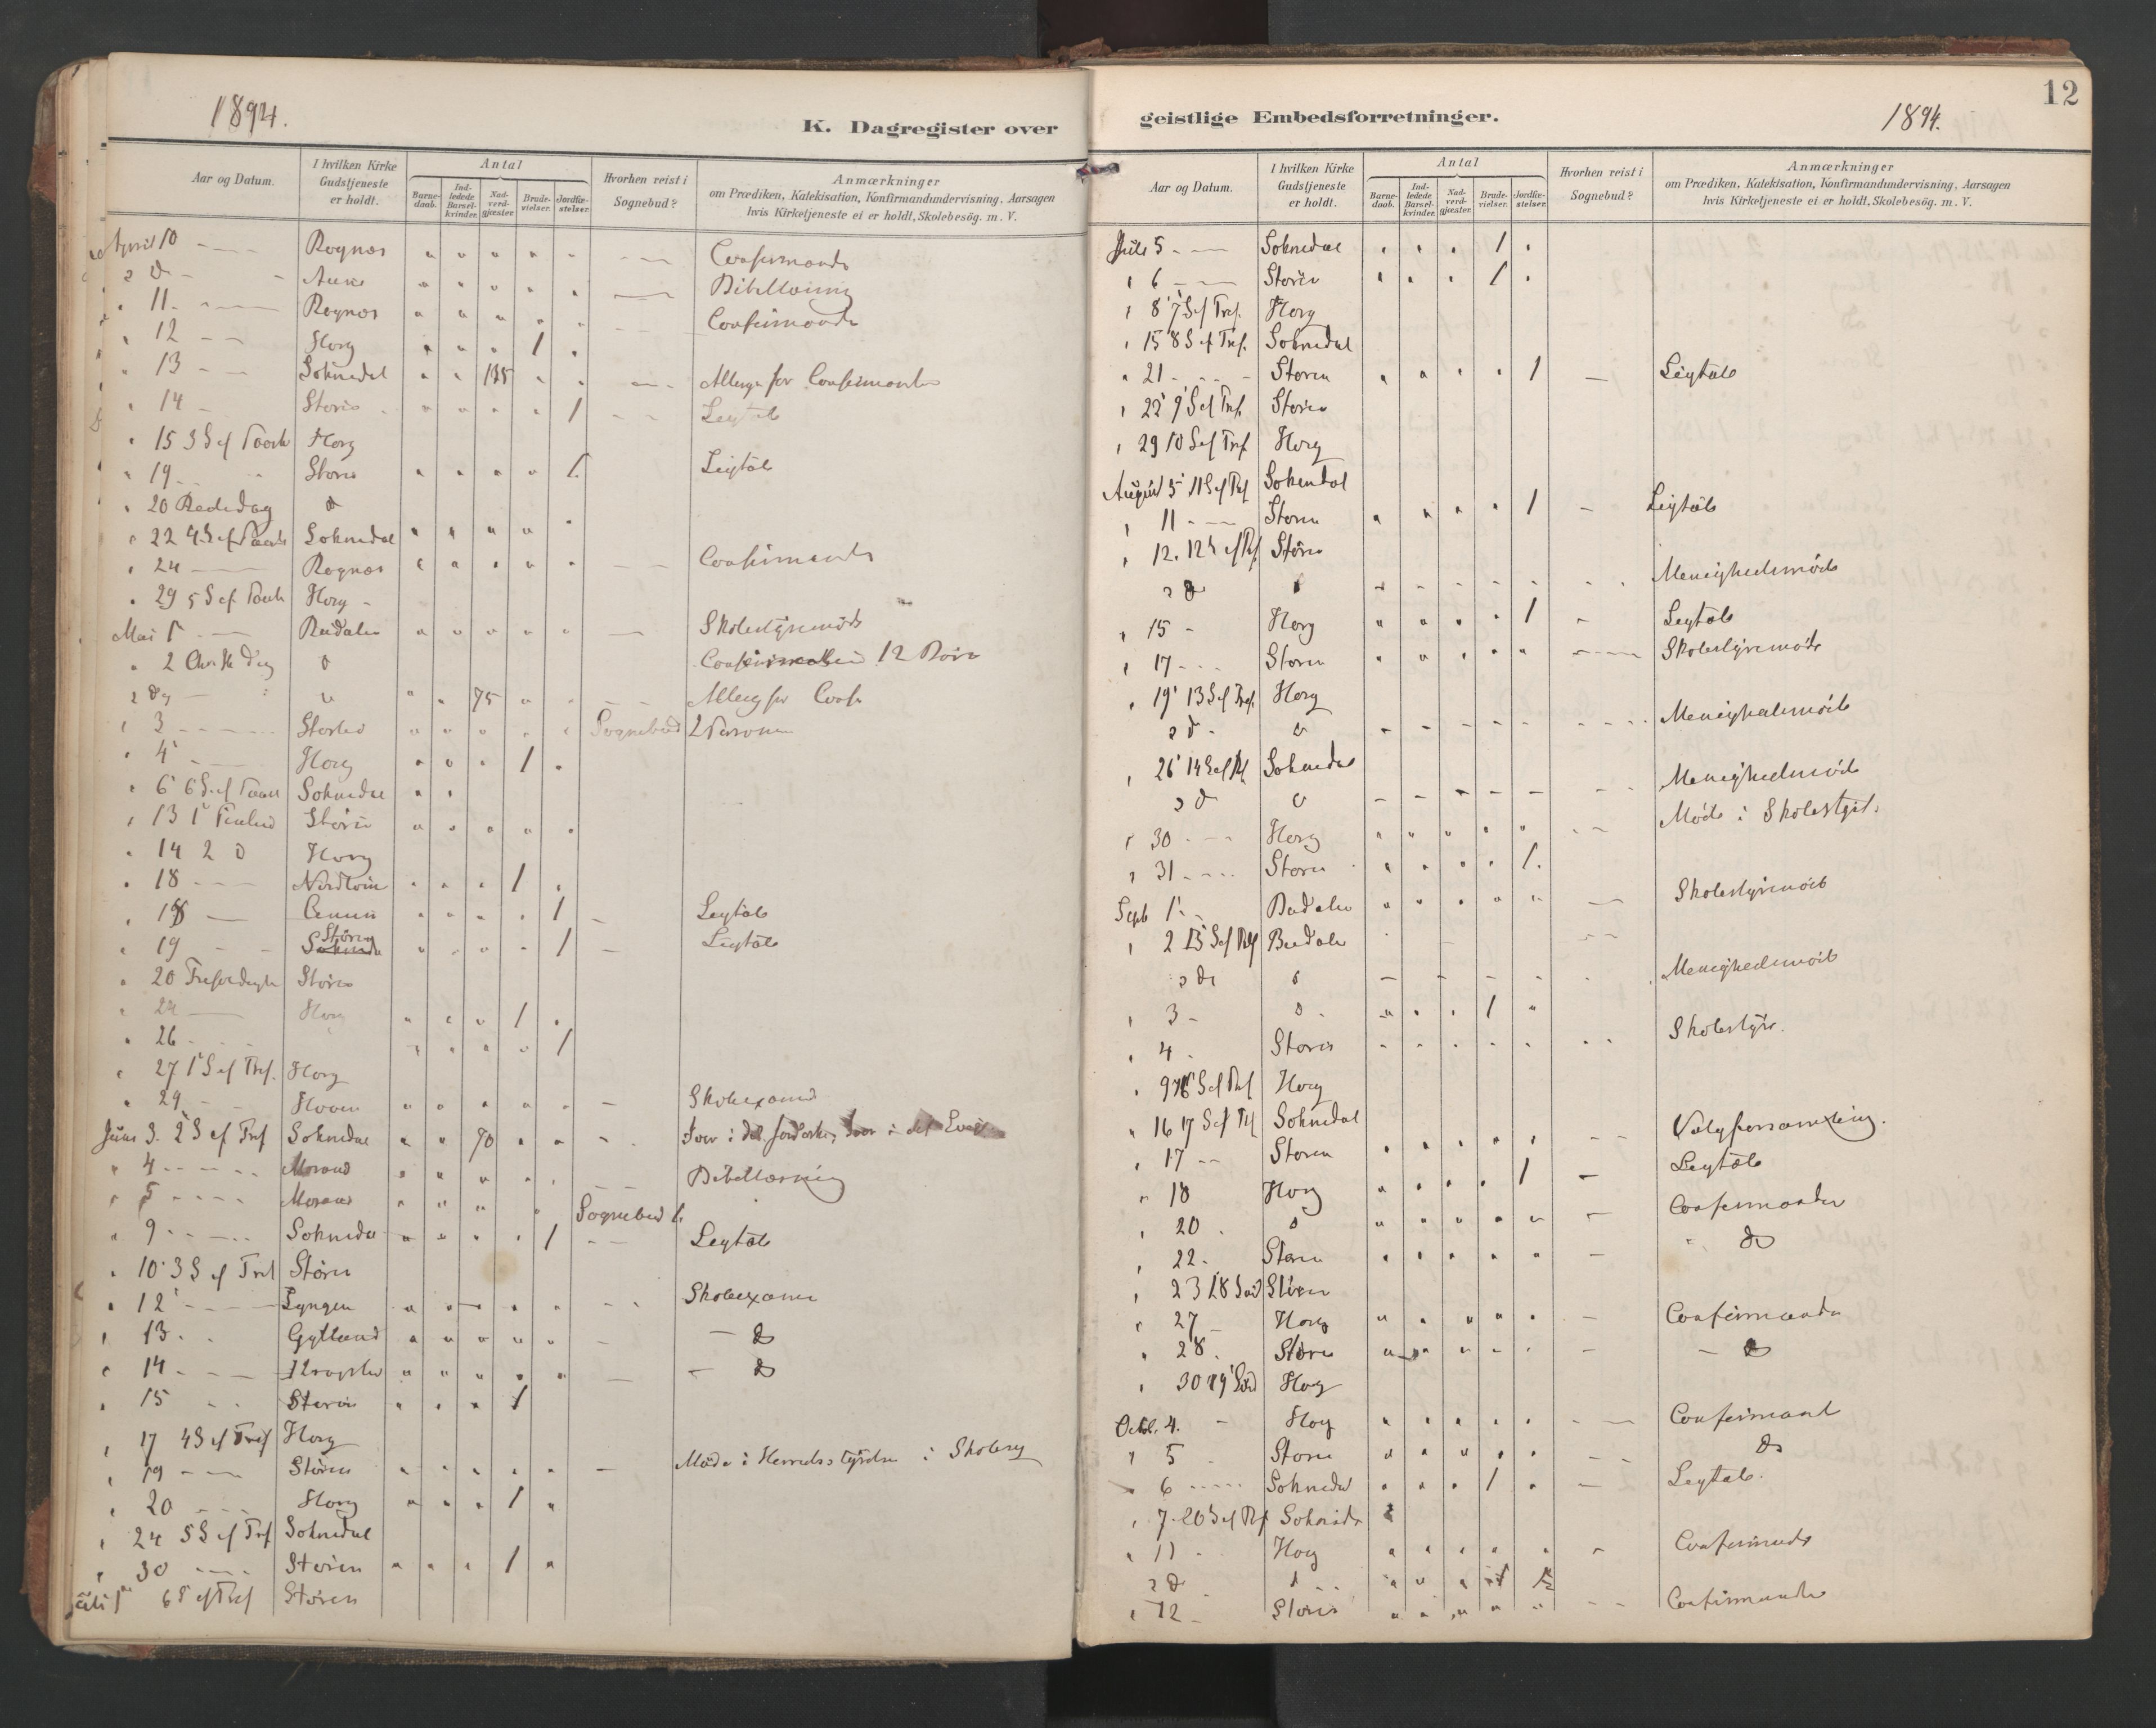 1894.
K. Dagregister over
Aar og Datum.
I hvilken Kirke Gudstjeneste er holdt.
Antal
Barne-daab.
Ind-ledede Barsel-kvinder.
Nad-verd-gjæster.
Brude-vielser.
Jordfæ-stelser.
Hvorhen reist i Sognebud?
Anmærkninger
om Prædiken, Katekisation, Konfirmandundervisning, Aarsagen
hvis Kirketjeneste ei er holdt, Skolebesög. m. V.
April 10 Rognes Confirmander
" d
" 11 Rognes Confirmander
" 12 Horg 1
" 13 Soknedal Altergang for Confirmanter
" 14 Støren 1 Ligtale
" 15 3 S ef Paask Horg
" 19 Støren 1 Ligtale
" 20 Bededag d
" 22 4 S ef Paask Soknedal
" 24 Rognes Confirmander
" 29 5 S ef Paask Horg
Mai 1 Budalen Skolestyremøde
" 2 d 12 Børn
" d 75 Alterg for Conf
" 3 Sognebud 2 Personer
" 4 Horg 1
" 6 6 S ef Paask Soknedal
" 13 1 Støren
" 14 2 d Horg
" 18 1
" 18 1 Ligtale
" 19 Støren 1 Ligtale
" 20 Støren
" 24 Horg 1
" 26 1
" 27 1 S ef Tref. Horg
" 29 Hoven Skolexamen
Juni 3. 2 S ef Tref Soknedal 70
" 4 Morand Bibellæsning
" 5 Morand Sognebud 1.
" 9 Soknedal 1 Ligtale
" 10 3 S ef Tref Støren
" 12 Lyngen Skolexamen
" 13 Gylland d
" 14 d
" 15 Støren 1
" 17 4 S ef Tref Horg
" 19 Støren Møde i Herredsstyrelse
" 20 Horg 1
" 24 5 S ef Tref Soknedal
" 30 Støren 1
Juli 1 6 S ef Tref Støren
geistlige Embedsforretninger.
1894.
12
Aar og Datum.
I hvilken Kirke Gudstjeneste er holdt.
Antal
Barne-daab.
Ind-ledede Barsel-kvinder.
Nad-verd-gjæster.
Brude-vielser.
Jordfæ-stelser.
Hvorhen reist i Sognebud?
Anmærkninger
om Prædiken, Katekisation, Konfirmandundervisning, Aarsagen
hvis Kirketjeneste ei er holdt, Skolebesög. m. V.
Juli 5 Soknedal 1
" 6 Støren 1
" 8 7 S ef Tref. Horg
" 15 8 S ef Tref. Soknedal
" 21 Støren 1 Ligtale
" 22 9 S ef Tref. Støren
" 29 10 S ef Tref Horg
August 5 11 S ef Tref Soknedal
" 11 Støren 1 Ligtale
" 12. 12 S ef Tref Støren
" d d Menighedsmøde
" 15 Horg 1 Ligtale
" 17 Støren Skolestyremøde
" 19 13 S ef Tref. Horg
" d d Menighedsmøde
" 26 14 S ef Tref Soknedal
" d d Menighedsmøde
" 30 Horg Møde i Skolestyr.
" 31 Støren 1
Sept 1 Budalen Skolestyremøde
" 2 15 S ef Tref Budalen
" d d Menighedsmøde
" 3 d 1
" 4 Støren Skolestyre.
" 9 16 S ef Tref Horg
" 16 17 S ef Tref Soknedal
" 17 Støren Valgforsamling.
" 18 Horg 1 Ligtale
" 20 d Confirmander
" 22 Støren d
" 23 18 Sønd Støren
" 27 Horg Confirmander
" 28 Støren d
" 30 19 Sønd Horg
Octob. 4. Horg Confirmant
" 5 Støren d
" 6 Soknedal 1 Ligtale.
" 7 20 S ef Tref Soknedal
" 11 Horg Confirmander
" d d
" 12 Støren Confirmander